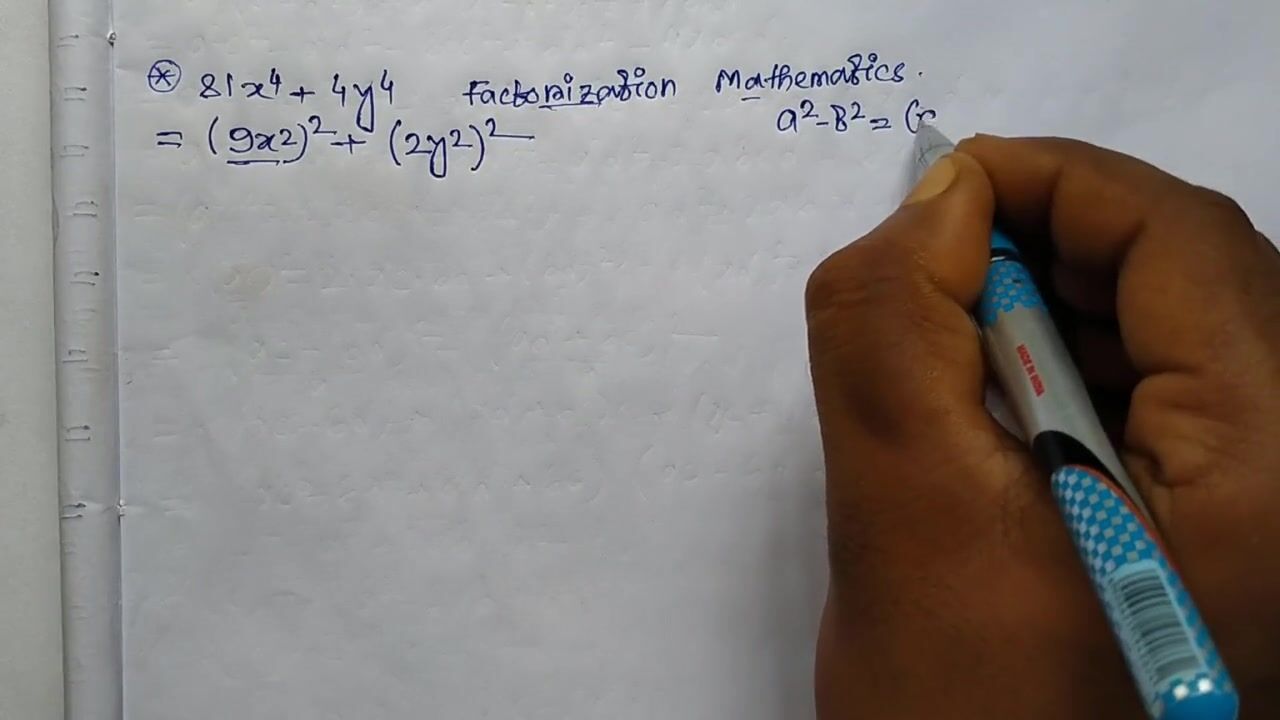 ⊛ 81x⁴ + 4y⁴ Factorization Mathematics.
= (9x²)² + (2y²)²
a² - B² = (
MADE IN INDIA